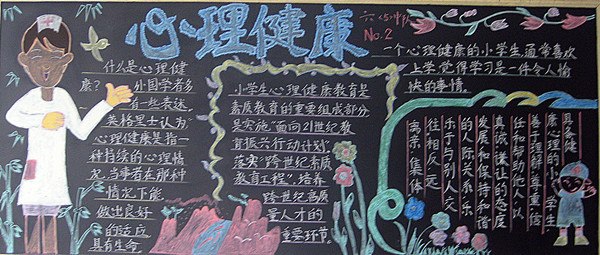 心理健康
六(5)中队
No.2
什么是心理健
康? 外国学者多
有一些表述,
英格里士认为
心理健康是指一
种持续的心理情
况,当事者在那种
情况下能
做出良好
的适应
具有生命
小学生心理健康教育是
素质教育的重要组成部分
是实施"面向21世纪教
育振兴行动计划"
落实"跨世纪素质
教育工程",培养
跨世纪高质
量人才的
重要环节。
一个心理健康的小学生通常喜欢
上学,觉得学习是一件令人愉
快的事情。
具备健
康心理的小学生
善于理解,尊重,信
任和帮助他人,以
真诚,谦让的态度
发展和保持和谐
的人际关系,乐
于与别人交
往相反,远
离亲,集体